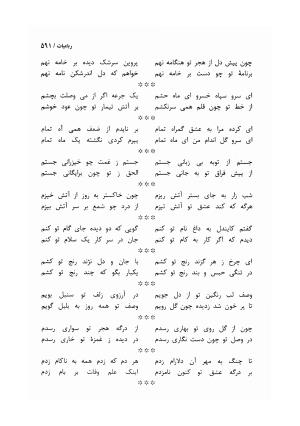 رباعیات / ۵۹۱
چون پیش دل از هجر تو هنگامه نهم    پروین سرشک دیده بر خامه نهم
برنامهٔ تو چو دست بر خامه نهم    خواهم که دل اندرشکن نامه نهم
***
ای سرو سپاه خسرو ای ماه حشم    یک جرعه اگر از می وصلت بچشم
از خط تو چون قلم همی سرنکشم    بر آتش تیمار تو چون عود خوشم
***
ای کرده مرا به عشق گمراه تمام    بر نایدم از ضعف همی آه تمام
ای سرو گل اندام من ای ماه تمام    پیرم کردی نگشته یک ماه تمام
***
جستم از توبه بی زبانی جستم    جستم ز غمت جو خیزرانی جستم
از پیش فراق تو به جانی جستم    الحق ز تو چون برایگانی جستم
***
شب زار به جای سنتر آتش ریزم    چون خاکستر به روز از آتش خیزم
هرگه که کند عشق تو آتش تیزم    از درد چو شمع بر سر آتش بیزم
***
گفتم کایندل به داغ نام تو کنم    گویی که دو دیده جای گام تو کنم
دیدم که اگر کار به کام تو کنم    جان در سر کار یک سلام تو کنم
***
ای چرخ ز هر گزند رنج تو کشم    با جان و دل نژند رنج تو کشم
در تنگی حبس و بند رنج تو کشم    یکبار بگو که چند رنج تو کشم
***
وصف لب رنگین تو از دل جویم    در آرزوی زلف تو سنبل بویم
تا بر خون شد زدیده چون گل رویم    وصف تو همه روز به بلبل گویم
***
چون از گل روی تو بهاری رسدم    از درگه هجر تو سواری رسدم
در وصل تو چون دست نگاری رسدم    در دیده ز غمزهٔ تو خاری رسدم
***
تا چنگ به مهر آن دلارام زدم    هر دم که زدم همه به ناکام زدم
بر درگه عشق تو کنون نامزدم    اینک علم وفات بر بام زدم
***